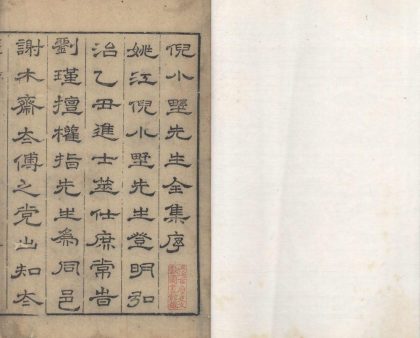 倪小墅先生全集序
姚江倪小墅先生登明弘
治乙丑進士筮仕庶常旹
劉瑾擅權指先生為同邑
謝木齋太傅之党出知太